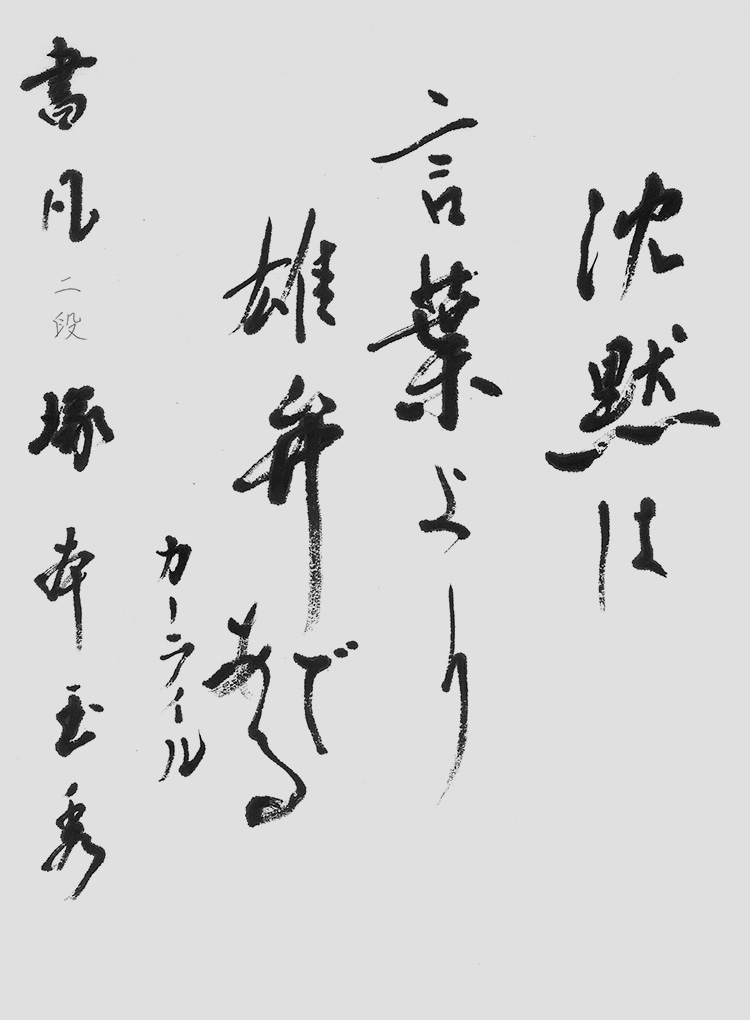 沈黙は
言葉より
雄弁である
カーライル
書凡 二段 塚本玉秀